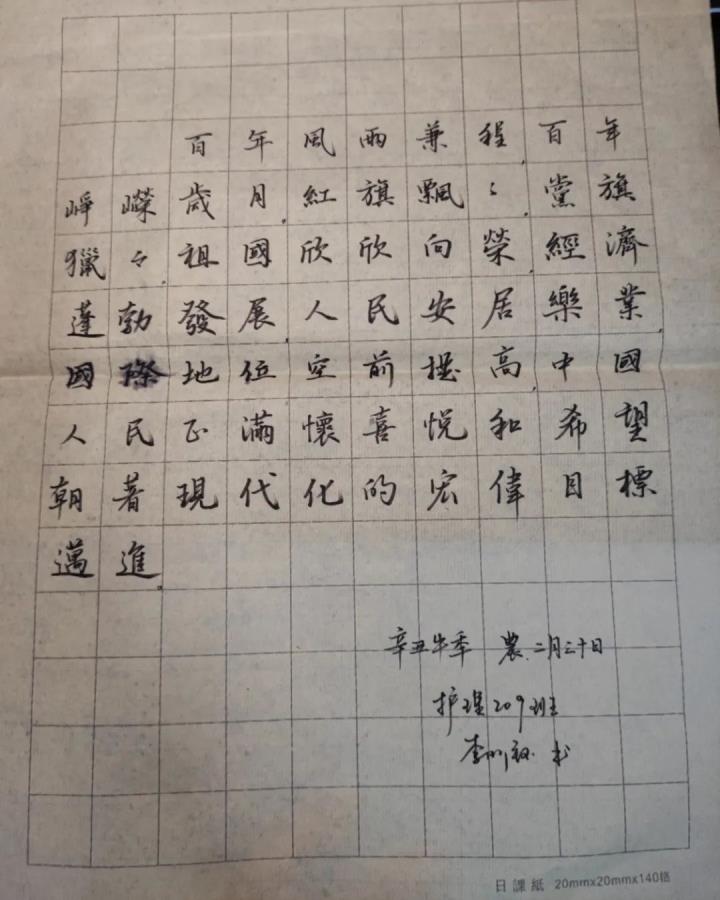 百年風雨兼程,百年
崢嶸歲月.紅旗飄々.黨旗
獵々.祖國欣欣向榮.經濟
蓬勃發展.人民安居樂業.
國際地位空前提高.中國
人民正滿懷喜悅和希望
朝著現代化的宏偉目標
邁進.
辛丑牛年 農.二月三十日
护理209班
李 书
日課紙 20mmx20mmx140格